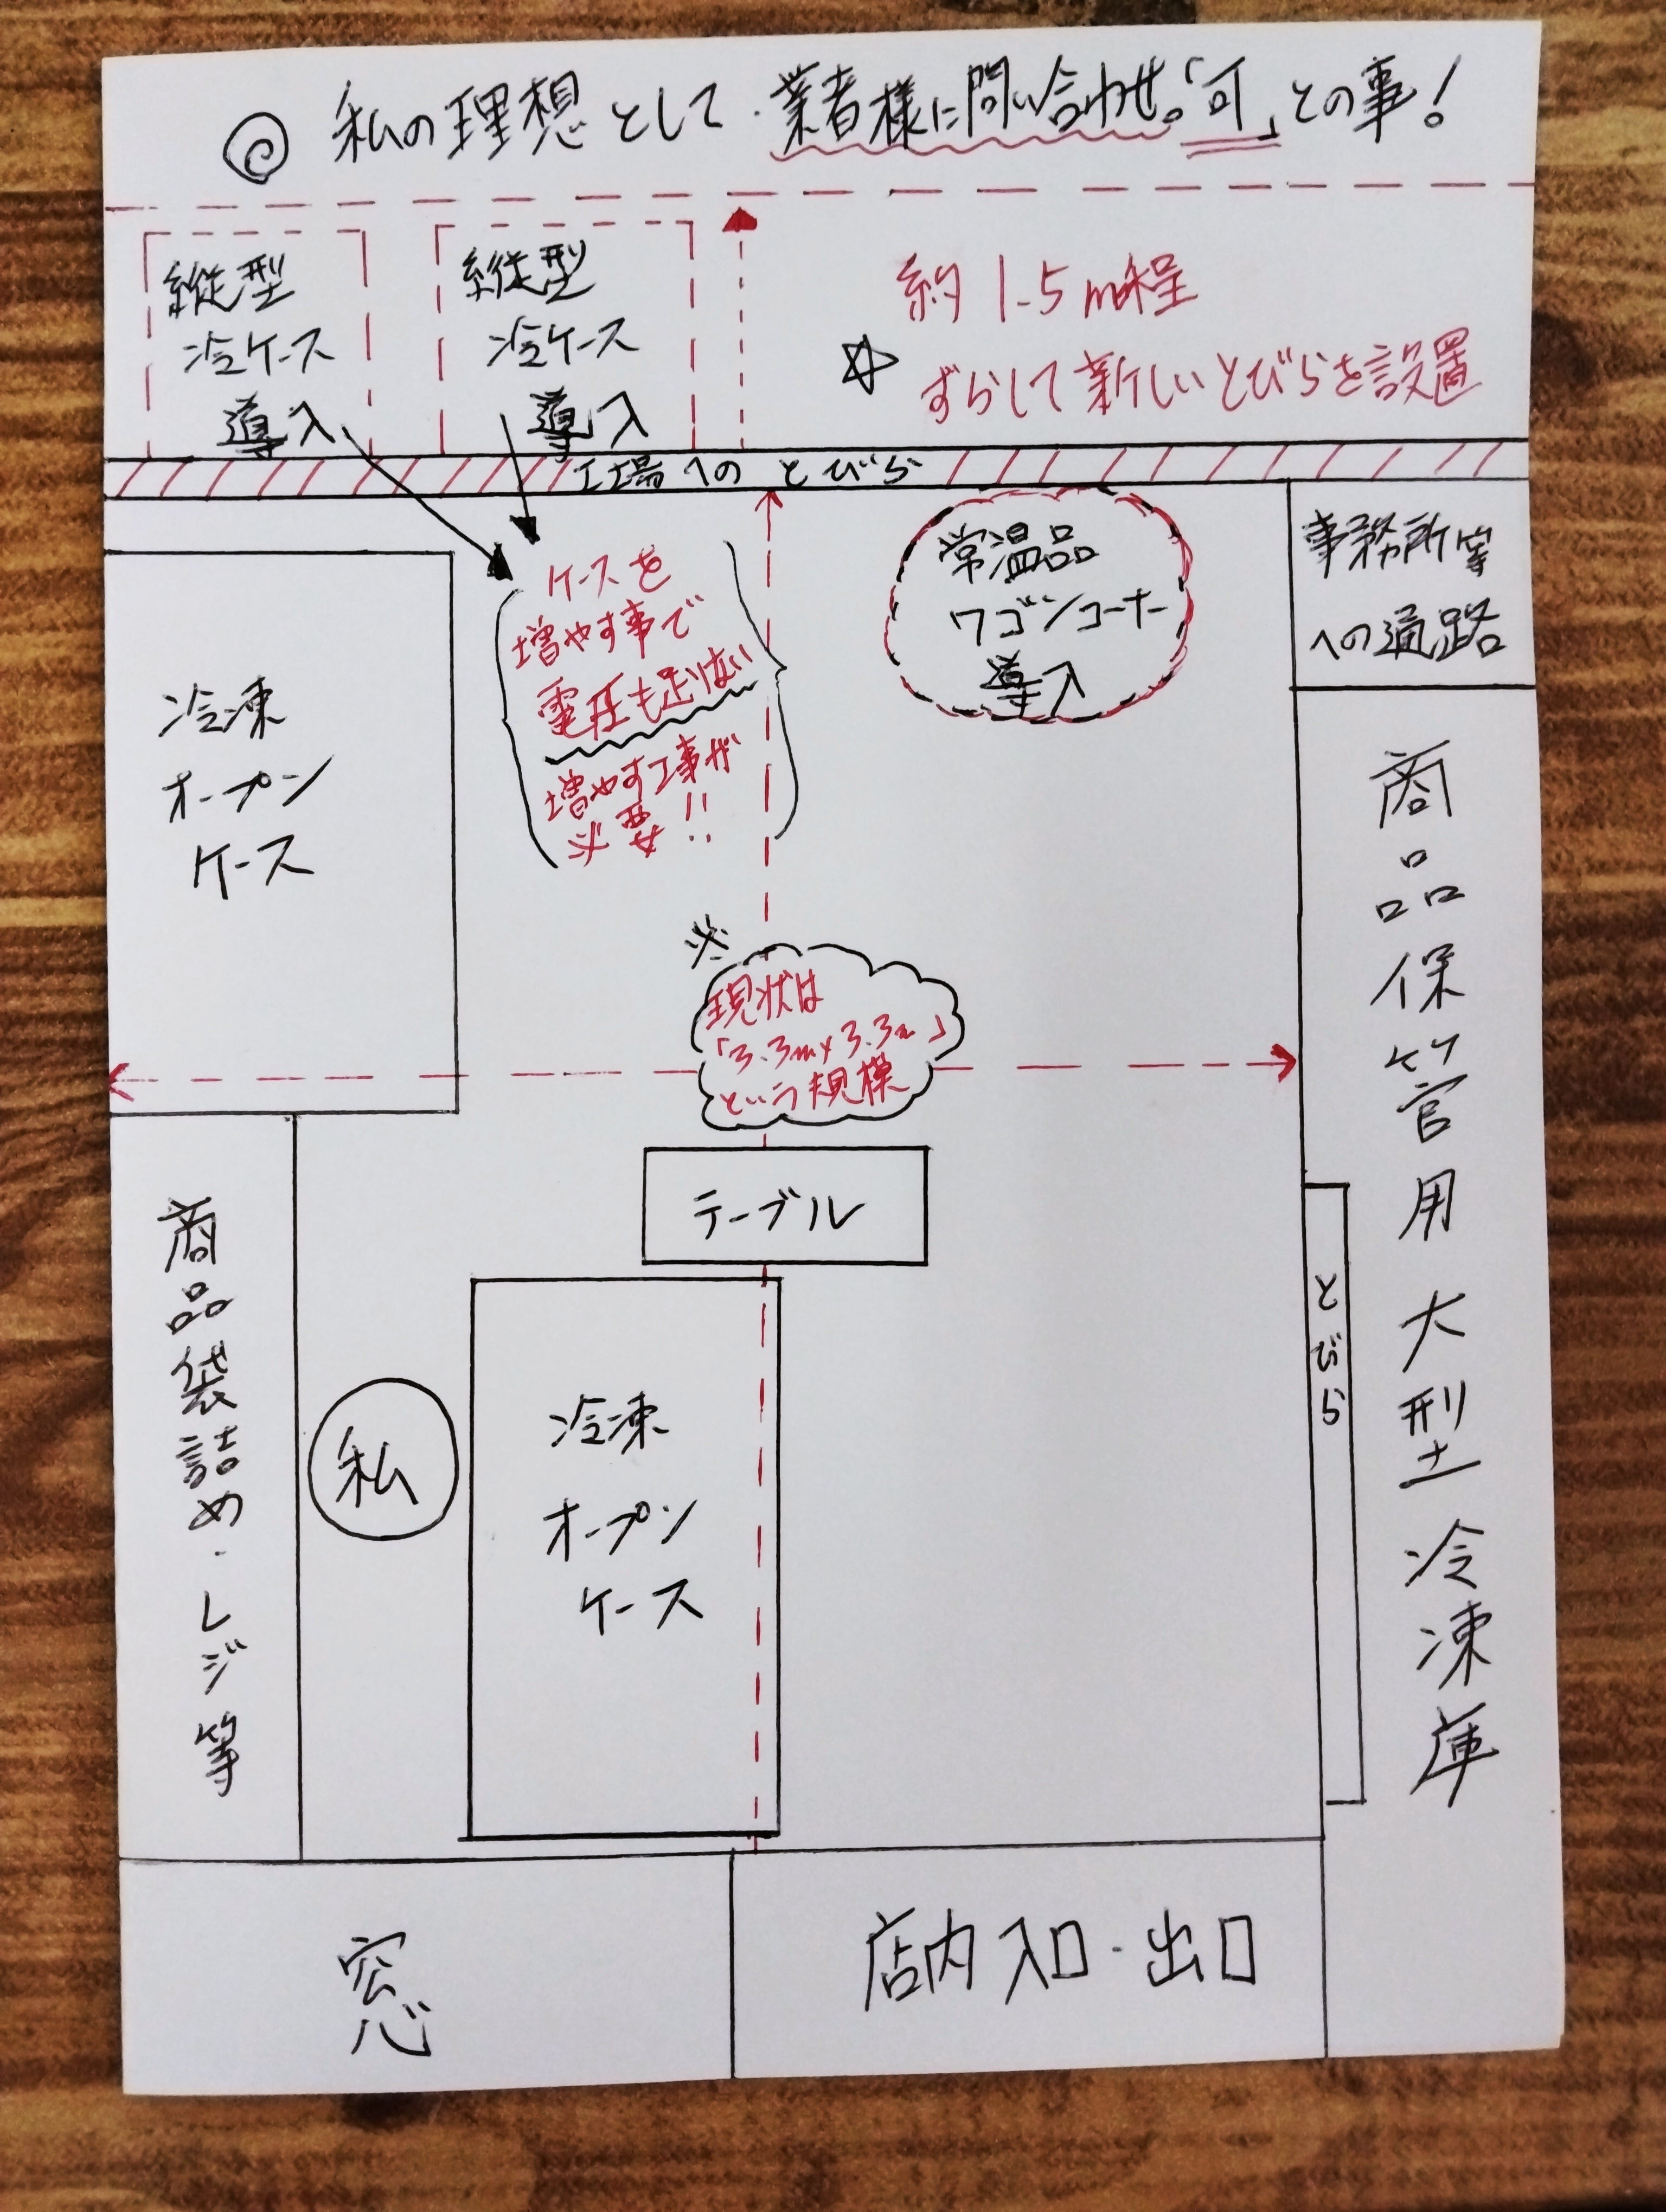 ◎ 私の理想として・業者様に問い合わせ。「可」との事!
縦型
冷ケース
導入
縦型
冷ケース
導入
約1.5m程
☆ ずらして新しいとびらを設置
工場へのとびら
ケースを
増やす事で
電圧も足りない
増やす工事が
必要!!
常温品
ワゴンコーナー
導入
事務所等
への通路
冷凍
オープン
ケース
※
現状は
「3.3m×3.3m」
という規模
商品保管用大型冷凍庫
とびら
テーブル
商品袋詰め・レジ等
私
冷凍
オープン
ケース
窓
店内入口・出口